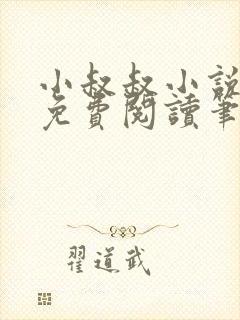 小叔叔小說
免費閱讀筆
翟道武